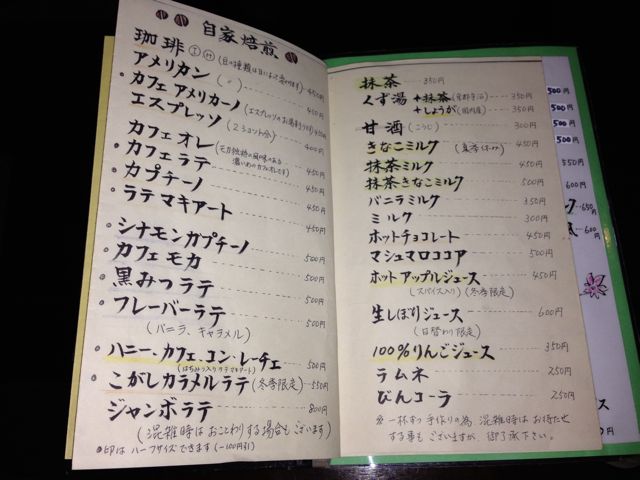 自家焙煎
珈琲 (豆の種類は日によって変わります) 450円
アメリカン (〃) 450円
・カフェアメリカーノ (エスプレッソのお湯割りです) 450円
エスプレッソ (2ショット分) 400円
カフェオレ (モカ独特の風味のある濃いめのカフェオレです) 450円
・カフェラテ 450円
・カプチーノ 450円
・ラテマキアート 450円
・シナモンカプチーノ 500円
・カフェモカ 500円
・黒みつラテ 500円
・フレーバーラテ 500円
(バニラ、キャラメル)
・ハニー・カフェ・コン・レーチェ 500円
(はちみつ入りラテマキアート)
・こがしカラメルラテ (冬季限定) 550円
ジャンボラテ 800円
(混雑時はおことわりする場合もございます)
・印はハーフサイズできます (-100円引)
抹茶 350円
くず湯 +抹茶 (京都宇治) 350円
+しょうが (国内産) 350円
甘酒 (こうじ) 300円
きなこミルク (夏季休み) 450円
抹茶ミルク 450円
抹茶きなこミルク 500円
バニラミルク 350円
ミルク 300円
ホットチョコレート 450円
マシュマロココア 500円
ホットアップルジュース 450円
(スパイス入り) (冬季限定)
生しぼりジュース 600円
(日替わり限定)
100%りんごジュース 350円
ラムネ 250円
びんコーラ 250円
※一杯ずつ手作りの為 混雑時はお待たせ
する事もございますが、御了承下さい。
500円
500円
500円
500円
550円
600円
650円
600円
ス